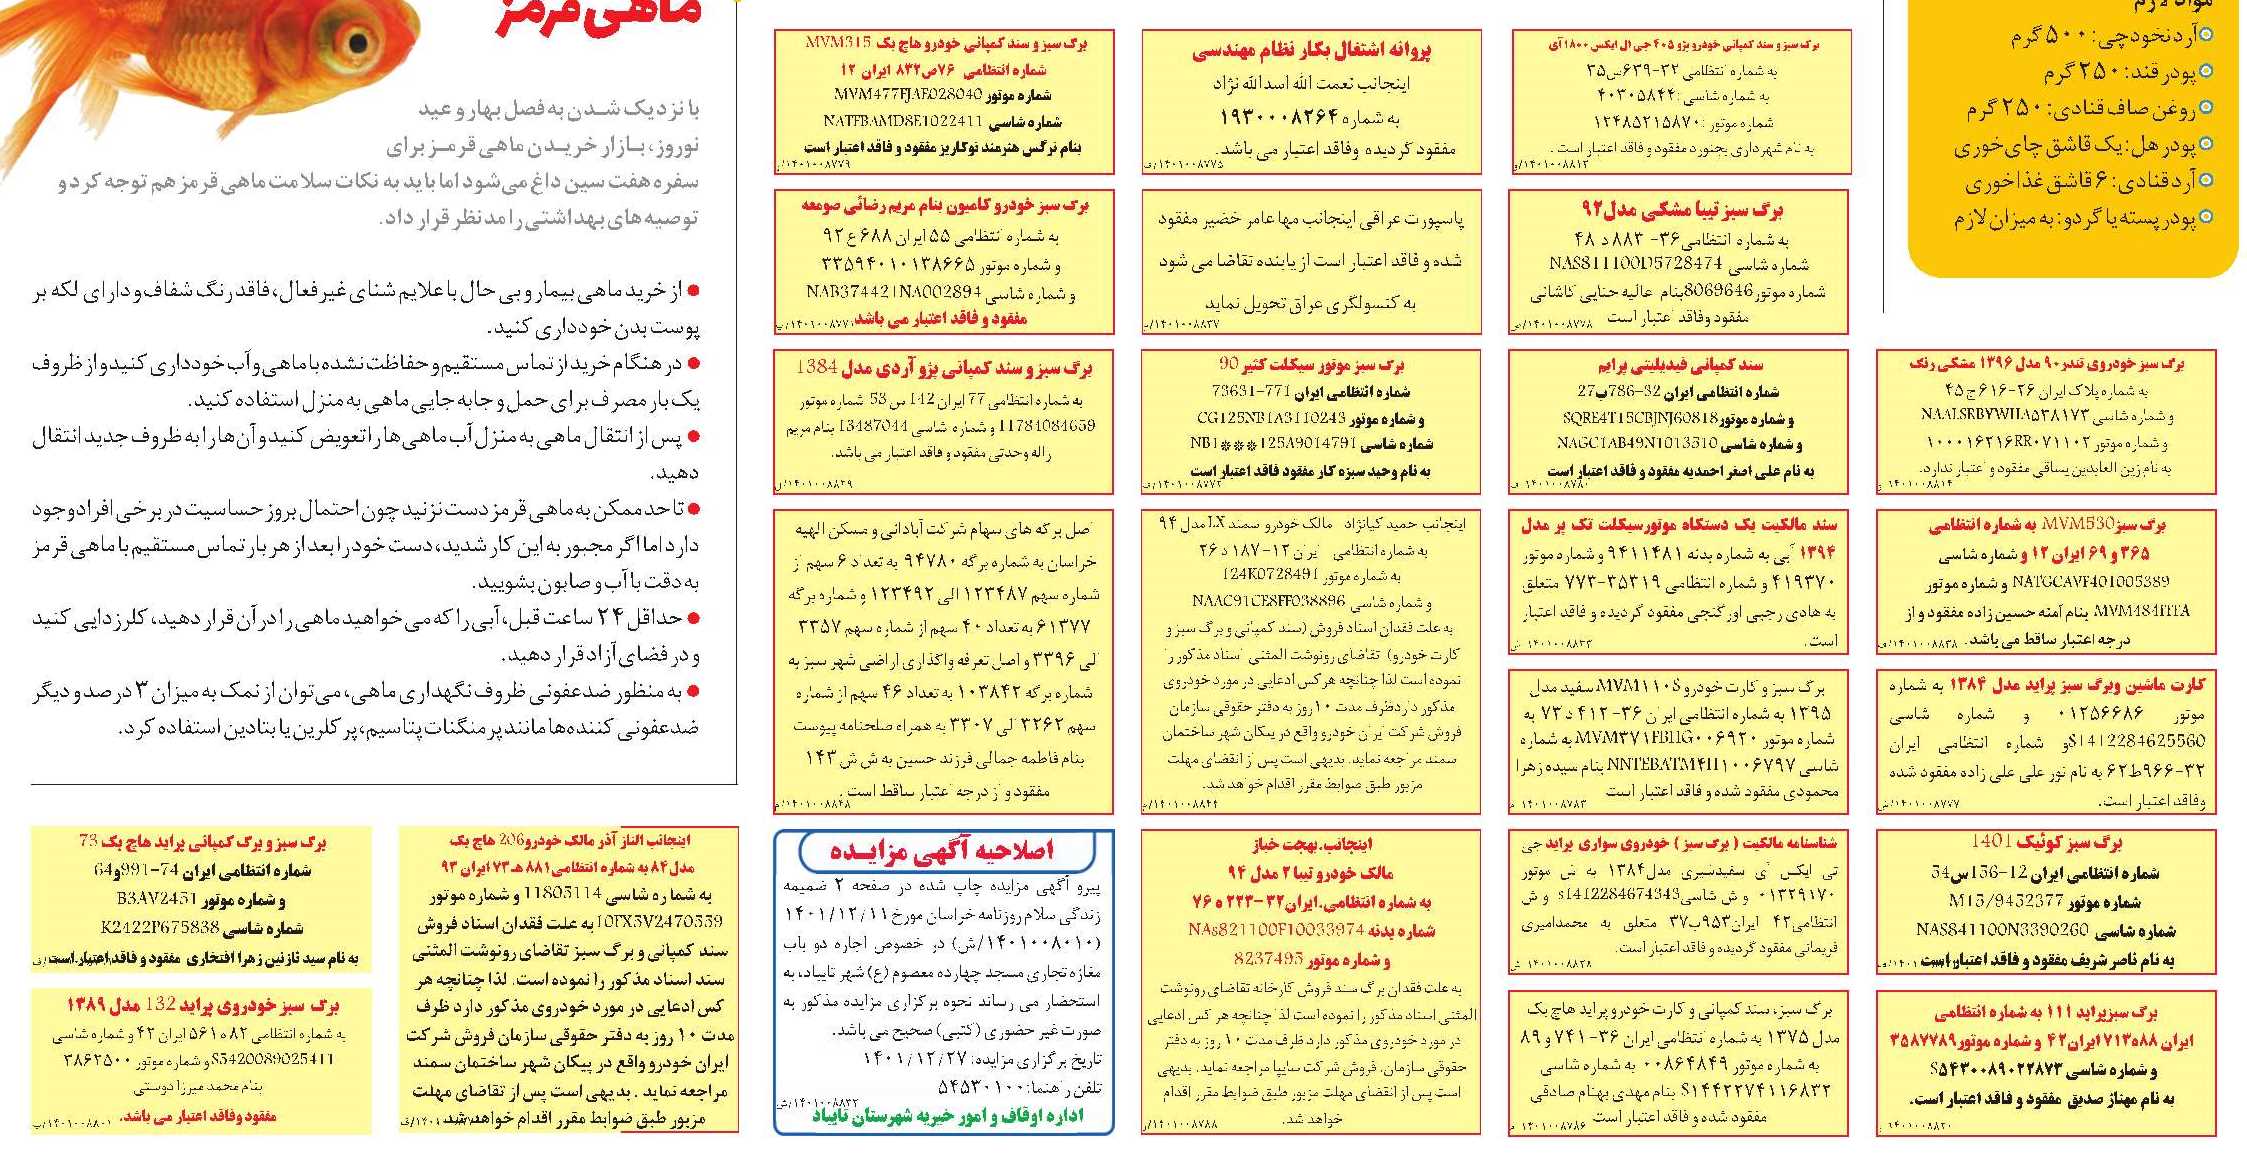 مواد لازم
آردنخودچی: ۵۰۰ گرم
پودر قند: ۲۵۰ گرم
روغن صاف قنادی: ۲۵۰ گرم
پودر هل: یک قاشق چای‌خوری
آرد قنادی: ۶ قاشق غذاخوری
پودر پسته یا گردو: به میزان لازم
برگ سبز خودروی تندر۹۰ مدل ۱۳۹۶ مشکی رنگ
به شماره پلاک ایران ۲۶-۶۱۶ج۴۵
و شماره شاسی NAALSRBYWHA۵۳۸۱۷۳
و شماره موتور ۱۰۰۰۱۶۲۱۶RR۰۷۱۱۰۲
به نام زین العابدین یساقی مفقود و اعتبار ندارد.
برگ سبزMVM530 به شماره انتظامی
۳۶۵ و ۶۹ ایران ۱۲ و شماره شاسی
NATGCAVF401005389 و شماره موتور
بنام آمنه حسین زاده مفقود و از
درجه اعتبار ساقط می باشد. ۱۴۰۱۰۰۸۸۳۸/ف
کارت ماشین وبرگ سبز پراید مدل ۱۳۸۴ به شماره
موتور ۰۱۲۵۶۶۸۶ و شماره شاسی
S1412284625560و شماره انتظامی ایران
۳۲-۹۶۶ط۶۲ به نام نور علی علی زاده مفقود شده
وفاقد اعتبار است. ۱۴۰۱۰۰۸۷۷۷/ش
برگ سبز کوئیک 1401
شماره انتظامی ایران 12-156س54
شماره موتور M15/9432377
شماره شاسی NAS841100N3390260
به نام ناصر شریف مفقود و فاقد اعتبار است
برگ سبزپراید ۱۱۱ به شماره انتظامی
ایران ۸۸ه۷۱۳ ایران۴۲ و شماره موتور۳۵۸۷۷۸۹
و شماره شاسی S۵۴۳۰۰۸۹۰۲۲۸۷۳
به نام مهناز صدیق مفقود و فاقد اعتبار است.
۱۴۰۱۰۰۸۸۲۰
برگ سبز و سند کمپانی خودرو پژو ۴۰۵ جی ال ایکس ۱۸۰۰ آی
به شماره انتظامی ۳۲-۶۳۹س۳۵
به شماره شاسی :۴۰۳۰۵۸۴۴
شماره موتور :۱۲۴۸۵۲۱۵۸۷۰
به نام شهرداری بجنورد مفقود و فاقد اعتبار است . ۱۴۰۱۰۰۸۸۱۲/و
برگ سبز تیبا مشکی مدل۹۲
به شماره انتظامی۳۶- ۸۸۳ د ۴۸
شماره شاسی NAS811100D5728474
شماره موتور8069646بنام عالیه حنایی کاشانی
مفقود وفاقد اعتبار است ۱۴۰۱۰۰۸۷۷۸/ص
سند کمپانی فیدیلیتی پرایم
شماره انتظامی ایران 32-786ب27
و شماره موتورSQRE4T15CBJNJ60818
و شماره شاسی NAGC1AB49N1013510
به نام علی اصغر احمدیه مفقود و فاقد اعتبار است
۱۴۰۱۰۰۸۷۸۰ ف
سند مالکیت یک دستگاه موتورسیکلت تک پر مدل
۱۳۹۴ آبی به شماره بدنه ۹۴۱۱۴۸۱ و شماره موتور
۴۱۹۳۷۰ و شماره انتظامی ۳۵۳۱۹-۷۷۳ متعلق
به هادی رجبی اورگنجی مفقود گردیده و فاقد اعتبار
است. ۱۴۰۱۰۰۸۸۳۳ ش
برگ سبز و کارت خودرو MVM۱۱۰S سفید مدل
۱۳۹۵ به شماره انتظامی ایران ۳۶-۴۱۲ د ۷۳ به
شماره موتور MVM۳۷۱FBHG۰۰۶۹۲۰ به شماره
شاسی NNTEBATM۴H۱۰۰۶۷۹۷ بنام سیده زهرا
محمودی مفقود شده و فاقد اعتبار است ۱۴۰۱۰۰۸۷۸۳
شناسنامه مالکیت ( برگ سبز ) خودروی سواری پراید جی
تی ایکس آی سفیدشیری مدل۱۳۸۴ به ش موتور
۰۱۳۲۹۱۷۰ و ش شاسیs1412284674343 و ش
انتظامی۴۲ ایران۹۵۳ب۳۷ متعلق به محمدامیری
فریمانی مفقود گردیده و فاقد اعتبار است. ۱۴۰۱۰۰۸۸۲۸ ش
برگ سبز، سند کمپانی و کارت خودرو پراید هاچ بک
مدل ۱۳۷۵ به شماره انتظامی ایران ۳۶-۷۴۱ و ۸۹
به شماره موتور ۰۰۸۶۴۸۴۹ به شماره شاسی
S۱۴۴۲۲۷۴۱۱۶۸۳۲ بنام مهدی بهنام صادقی
مفقود شده و فاقد اعتبار است ۱۴۰۱۰۰۸۷۸۶
پروانه اشتغال بکار نظام مهندسی
اینجانب نعمت الله اسدالله نژاد
به شماره ۱۹۳۰۰۰۸۲۶۴
مفقود گردیده وفاقد اعتبار می باشد. ۱۴۰۱۰۰۸۷۷۵/ف
پاسپورت عراقی اینجانب مها عامر خضیر مفقود
شده و فاقد اعتبار است از یابنده تقاضا می شود
به کنسولگری عراق تحویل نماید ۱۴۰۱۰۰۸۸۳۷/ص
برگ سبز موتور سیکلت کثیر 90
شماره انتظامی ایران 771-73631
و شماره موتور CG125NB1A3110243
شماره شاسی NB1***125A9014791
به نام وحید سبزه کار مفقود فاقد اعتبار است
۱۴۰۱۰۰۸۷۷۲/ف
اینجانب حمید کیانژاد مالک خودرو سمند LX مدل ۹۴
به شماره انتظامی ایران ۱۲-۱۸۷ د ۲۶
به شماره موتور 124K0728491
و شماره شاسی NAAC91CE8FF038896
به علت فقدان اسناد فروش (سند کمپانی و برگ سبز و
کارت خودرو) تقاضای رونوشت المثنی اسناد مذکور را
نموده است لذا چنانچه هرکس ادعایی در مورد خودروی
مذکور داردظرف مدت ۱۰روز به دفتر حقوقی سازمان
فروش شرکت ایران خودرو واقع در پیکان شهر ساختمان
سمند مراجعه نماید. بدیهی است پس از انقضای مهلت
مزبور طبق ضوابط مقرر اقدام خواهد شد. ۱۴۰۱۰۰۸۸۴۴/م
اینجانب.بهجت خباز
مالک خودرو تیبا ۲ مدل ۹۴
به شماره انتظامی.ایران۳۲-۲۲۳ ه ۷۶
شماره بدنه NAs821100F10033974
و شماره موتور 8237495
به علت فقدان برگ سند فروش کارخانه تقاضای رونوشت
المثنی اسناد مذکور را نموده است لذا چنانچه هر کس ادعایی
در مورد خودروی مذکور دارد ظرف مدت ۱۰ روز به دفتر
حقوقی سازمان. فروش شرکت سایپا مراجعه نماید. بدیهی
است پس از انقضای مهلت مزبور طبق ضوابط مقرر اقدام
خواهد شد. ۱۴۰۱۰۰۸۷۸۸/ر
برگ سبز و سند کمپانی خودرو هاچ بک MVM315
شماره انتظامی ۷۶ص۸۳۲ ایران ۱۲
شماره موتور MVM477FJAE028040
شماره شاسی NATFBAMD8E1022411
بنام نرگس هنرمند نوکاریز مفقود و فاقد اعتبار است
۱۴۰۱۰۰۸۷۷۹/ر
برگ سبز خودرو کامیون بنام مریم رضائی صومعه
به شماره انتظامی ۵۵ ایران ۶۸۸ ع ۹۲
و شماره موتور ۳۳۵۹۴۰۱۰۱۳۸۶۶۵
و شماره شاسی NAB374421NA002894
مفقود و فاقد اعتبار می باشد ۱۴۰۱۰۰۸۷۷۱/ب
برگ سبز و سند کمپانی پژو آردی مدل 1384
به شماره انتظامی 77 ایران 142 س 53 شماره موتور
11784084659 و شماره شاسی 13487044 بنام مریم
راله وحدتی مفقود و فاقد اعتبار می باشد.
۱۴۰۱۰۰۸۸۲۹/ل
اصل برگه های سهام شرکت آبادانی و مسکن الهیه
خراسان به شماره برگه ۹۴۷۸۰ به تعداد ۶ سهم از
شماره سهم ۱۲۳۴۸۷ الی ۱۲۳۴۹۲ و شماره برگه
۶۱۳۷۷ به تعداد ۴۰ سهم از شماره سهم ۳۳۵۷
الی ۳۳۹۶ و اصل تعرفه واگذاری اراضی شهر سبز به
شماره برگه ۱۰۳۸۴۲ به تعداد ۴۶ سهم از شماره
سهم ۳۲۶۲ الی ۳۳۰۷ به همراه صلحنامه پیوست
بنام فاطمه جمالی فرزند حسین به ش ش ۱۴۳
مفقود و از درجه اعتبار ساقط است . ۱۴۰۱۰۰۸۸۴۸/م
اصلاحیه آگهی مزایده
پیرو آگهی مزایده چاپ شده در صفحه ۲ ضمیمه
زندگی سلام روزنامه خراسان مورخ ۱۴۰۱/۱۲/۱۱
(۱۴۰۱۰۰۸۰۱۰/ش) در خصوص اجاره دو باب
مغازه تجاری مسجد چهارده معصوم (ع) شهر تایباد، به
استحضار می رساند نحوه برگزاری مزایده مذکور به
صورت غیر حضوری (کتبی) صحیح می باشد.
تاریخ برگزاری مزایده: ۱۴۰۱/۱۲/۲۷
تلفن راهنما: ۵۴۵۳۰۱۰۰ ۱۴۰۱۰۰۸۸۳۲/ش
اداره اوقاف و امور خیریه شهرستان تایباد
ماهی قرمز
با نزدیک شدن به فصل بهار و عید
نوروز، بازار خریدن ماهی قرمز برای
سفره هفت سین داغ می‌شود اما باید به نکات سلامت ماهی قرمز هم توجه کرد و
توصیه های بهداشتی را مدنظر قرار داد.
● از خرید ماهی بیمار و بی حال با علایم شنای غیرفعال، فاقد رنگ شفاف و دارای لکه بر
پوست بدن خودداری کنید.
● در هنگام خرید از تماس مستقیم و حفاظت نشده با ماهی و آب خودداری کنید و از ظروف
یک بار مصرف برای حمل و جابه جایی ماهی به منزل استفاده کنید.
● پس از انتقال ماهی به منزل آب ماهی‌ها را تعویض کنید و آن‌ها را به ظروف جدید انتقال
دهید.
● تا حد ممکن به ماهی قرمز دست نزنید چون احتمال بروز حساسیت در برخی افراد وجود
دارد اما اگر مجبور به این کار شدید، دست خود را بعد از هر بار تماس مستقیم با ماهی قرمز
به دقت با آب و صابون بشویید.
● حداقل ۲۴ ساعت قبل، آبی را که می خواهید ماهی را در آن قرار دهید، کلرزدایی کنید
و در فضای آزاد قرار دهید.
● به منظور ضدعفونی ظروف نگهداری ماهی، می‌توان از نمک به میزان ۳ درصد و دیگر
ضدعفونی کننده‌ها مانند پرمنگنات پتاسیم، پرکلرین یا بتادین استفاده کرد.
اینجانب الناز آذر مالک خودرو206 هاچ بک
مدل۸۴ به شماره انتظامی۸۸۱ هـ ۷۳ ایران ۹۳
به شماره شاسی 11803114 و شماره موتور
10FX3V2470339به علت فقدان اسناد فروش
سند کمپانی و برگ سبز تقاضای رونوشت المثنی
سند اسناد مذکور را نموده است. لذا چنانچه هر
کس ادعایی در مورد خودروی مذکور دارد ظرف
مدت ۱۰ روز به دفتر حقوقی سازمان فروش شرکت
ایران خودرو واقع در پیکان شهر ساختمان سمند
مراجعه نماید . بدیهی است پس از تقاضای مهلت
مزبور طبق ضوابط مقرر اقدام خواهد شد
برگ سبز و برگ کمپانی پراید هاچ بک 73
شماره انتظامی ایران 74-991و64
و شماره موتور B3AV2451
شماره شاسی K2422P675838
به نام سید نازنین زهرا افتخاری مفقود و فاقد اعتبار است
برگ سبز خودروی پراید 132 مدل ۱۳۸۹
به شماره انتظامی ۸۲ ه ۵۶۱ ایران ۴۲ و شماره شاسی
S5420089025411و شماره موتور ۳۸۶۲۵۰۰
بنام محمد میرزا دوستی
مفقود وفاقد اعتبار می باشد. ۱۴۰۱۰۰۸۸۰۱/ب